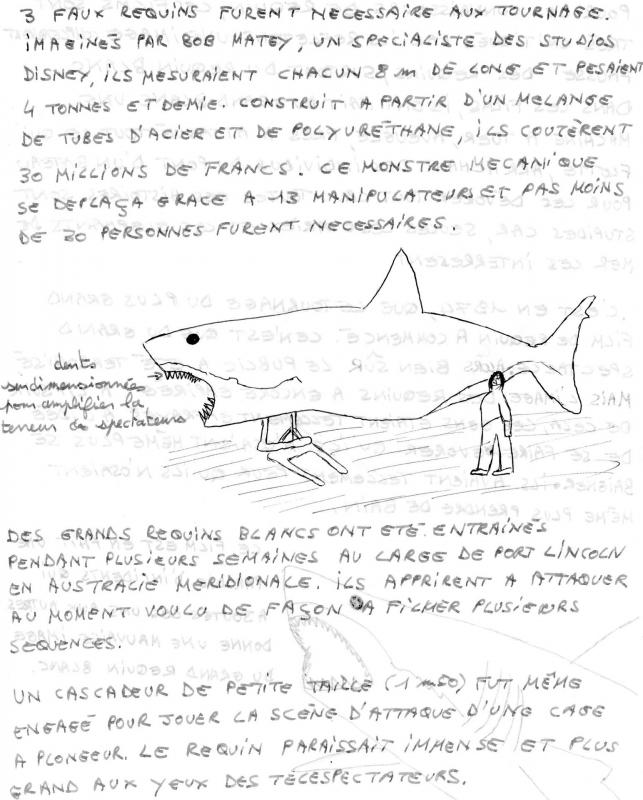 3 FAUX REQUINS FURENT NECESSAIRE AUX TOURNAGE.
IMAGINES PAR BOB MATEY, UN SPECIALISTE DES STUDIOS
DISNEY, ILS MESURAIENT CHACUN 8 m DE LONG ET PESAIENT
4 TONNES ET DEMIE. CONSTRUIT A PARTIR D'UN MELANGE
DE TUBES D'ACIER ET DE POLYURÉTHANE, ILS COUTÈRENT
30 MILLIONS DE FRANCS. CE MONSTRE MECANIQUE
SE DEPLAÇA GRACE A 13 MANIPULATEURS ET PAS MOINS
DE 30 PERSONNES FURENT NECESSAIRES.
dents
surdimensionnées
pour amplifier la
terreur de spectateurs
DES GRANDS REQUINS BLANCS ONT ETÉ ENTRAINÉS
PENDANT PLUSIEURS SEMAINES AU LARGE DE PORT LINCOLN
EN AUSTRALIE MERIDIONALE. ILS APPRIRENT A ATTAQUER
AU MOMENT VOULU DE FAÇON A FILMER PLUSIEURS
SEQUENCES.
UN CASCADEUR DE PETITE TAILLE (1m50) FUT MÊME
ENGAGÉ POUR JOUER LA SCÈNE D'ATTAQUE D'UNE CAGE
A PLONGEUR. LE REQUIN PARAISSAIT IMMENSE ET PLUS
GRAND AUX YEUX DES TÉLESPECTATEURS.